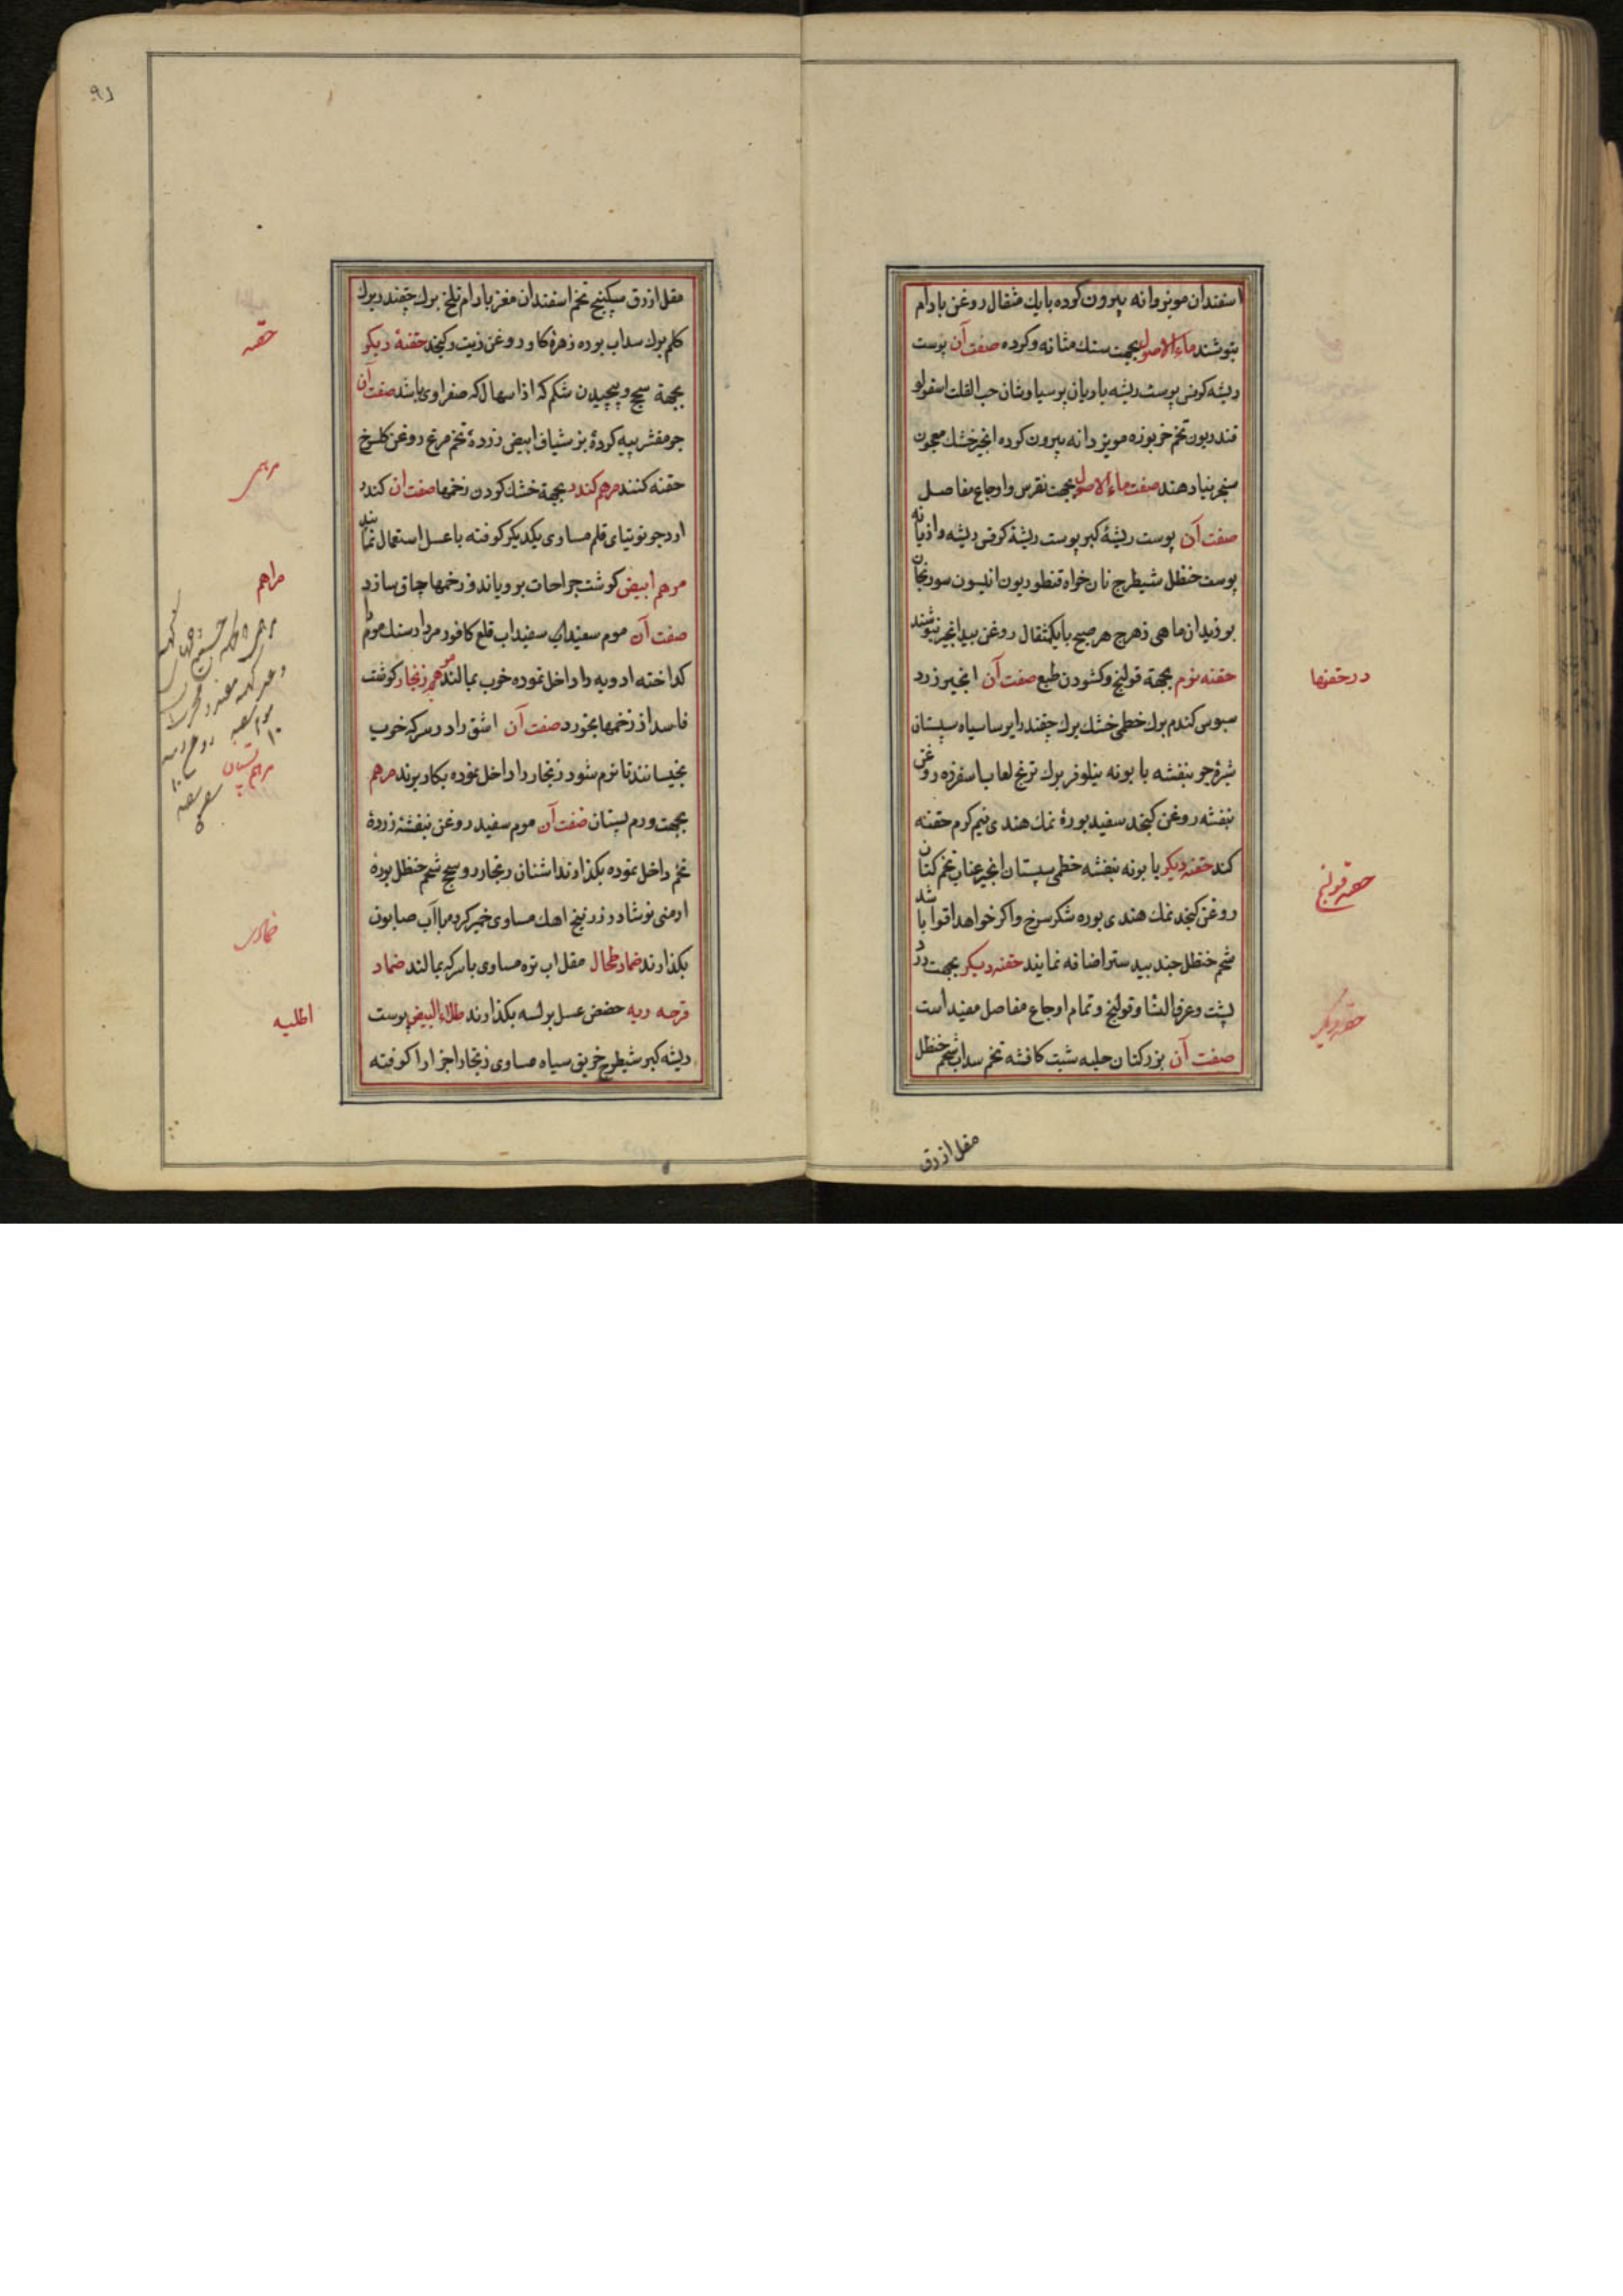 اسفندان مویز دانه بیرون کرده بایك مثقال روغن بادام
بنوشند ماء الاصول بجهت سنك مثانه وکرده صفت آن پوست
ریشه کرفس پوست ریشه بادیان پرسیاوشان حب القلت اسقولو
قندریون تخم خربوزه مویز دانه بیرون کرده انجیر خشك معجون
سنجرینیا دهند صفت ماء الاصول بجهت نقرس واوجاع مفاصل
صفت آن پوست ریشهٔ کبر پوست ریشهٔ کرفس ریشه رازیانه
پوست حنظل شیطرج نان خواه قنطوریون انیسون سورنجان
بوزیدان ماهی زهرج هر صبح بایکمثقال روغن بیدانجیر بنوشند
حقنه نرم بجهة قولنج وکشودن طبع صفت آن انجیر زرد
سبوس کندم برك خطمی خشك برك چغندر ایرسا سیاه سپستان
شیرهٔ جو بنفشه بابونه نیلوفر برك ترنج لعاب اسفرزه روغن
بنفشه روغن کنجد سفید بورهٔ نمك هندی نیم کرم حقنه
کند حقنه دیکر بابونه بنفشه خطمی سپستان انجیر عناب تخم کتان
روغن کنجد نمك هندی بوره شکر سرخ واکر خواهد اقوا باشد
شحم حنظل جند بیدستر اضافه نمایند حقنه دیکر بجهت درد
پشت وعرق النسا وقولنج وتمام اوجاع مفاصل مفید است
صفت آن بزر کتان حلبه شبت کافشه تخم سداب شحم حنظل
مقل ازرق
در حقنها
حقنه قولنج
حقنه دیکر
مقل ازرق سکبینج تخم اسفندان مغز بادام تلخ برك چغندر برك
کلم برك سداب بوره زهرهٔ کاو روغن زیت وکنجد حقنهٔ دیکر
بجهة سحج وپیچیدن شکم که از اسهال که صفراوی باشد صفت آن
جو مقشر پیه کردهٔ بز شیاف ابیض زردهٔ تخم مرغ روغن کلسرخ
حقنه کنند مرهم کندر بجهة خشك کردن زخمها صفت ان کندر
ارد جو توتیای قلم مساوی یکدیکر کوفته باعسل استعمال نمایند
مرهم ابیض کوشت جراحات برویاند وزخمها چاق سازد
صفت آن موم سفیداب سفیداب قلع کافور مردارسنك موم را
کداخته ادویه را داخل نموده خوب بمالند مرهم زنجار کوشت
فاسد از زخمها بخورد صفت آن اشق را در سرکه خوب
بخیسانند تا نرم شود زنجار را داخل نموده بکار برند مرهم
بجهت ورم پستان صفت آن موم سفید روغن بنفشه زردهٔ
تخم داخل نموده بکذارند اشنان زنجار روسحج شحم حنظل بوره
ارمنی نوشادر زرنیخ اهك مساوی خمیر کرده باآب صابون
بکذارند ضماد طحال مقل اب تره مساوی باسرکه بمالند ضماد
قرحه ریه حضض عسل بر لسه بکذارند طلاء البیض پوست
ریشه کبر شیطرج خربق سیاه مساوی زنجار اجزا را کوفته
حقنه
مراهم
مرهم پستان
ضمادات
اطلیه